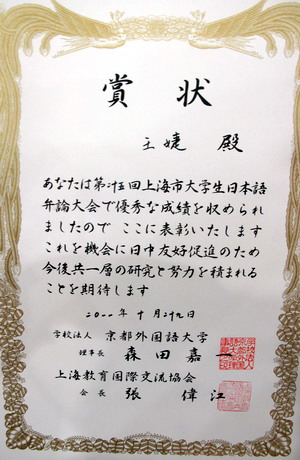 賞状
王婕 殿
あなたは第廿五回上海市大学生日本語
弁論大会で優秀な成績を収められ
ましたので ここに表彰いたします
これを機会に日中友好促進のため
今後共一層の研究と努力を積まれる
ことを期待します
二〇一一年 十月廿九日
学校法人 京都外国語大学
理事長 森田嘉一
上海教育国際交流協会
会長 張偉江